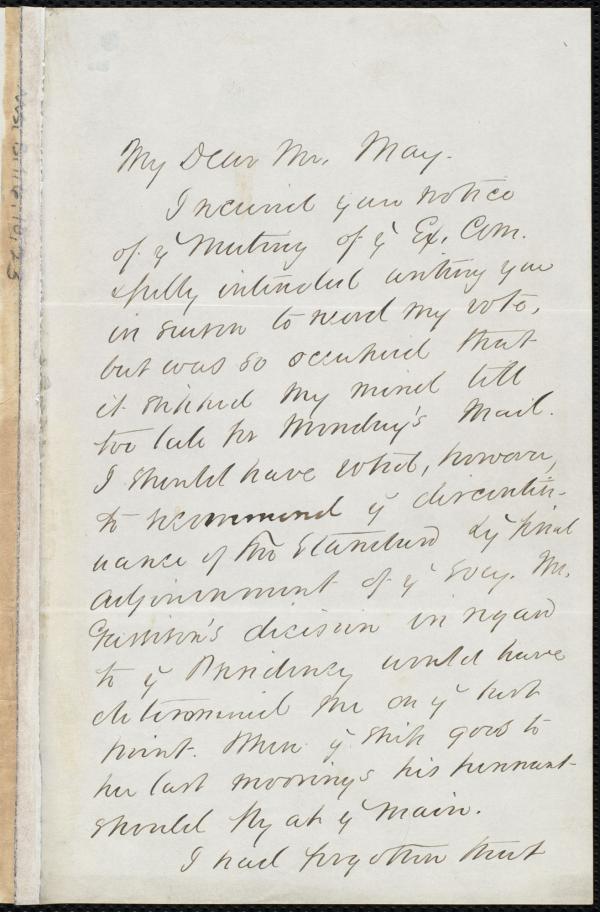 My Dear Mr. May.
I received your notice
of ye Meeting of ye Ex. Com.
& fully intended writing you
in season to record my vote,
but was so occupied that
it slipped my mind till
too late for Monday's Mail.
I should have voted, however,
to recommend ye discontin-
uance of the Standard & ye final
adjournment of ye Socy. Mr.
Garrison's decision in regard
to ye Presidency would have
determined me on ye last
point. When ye ship goes to
her last moorings his pennant
should fly at ye main.
I had forgotten that